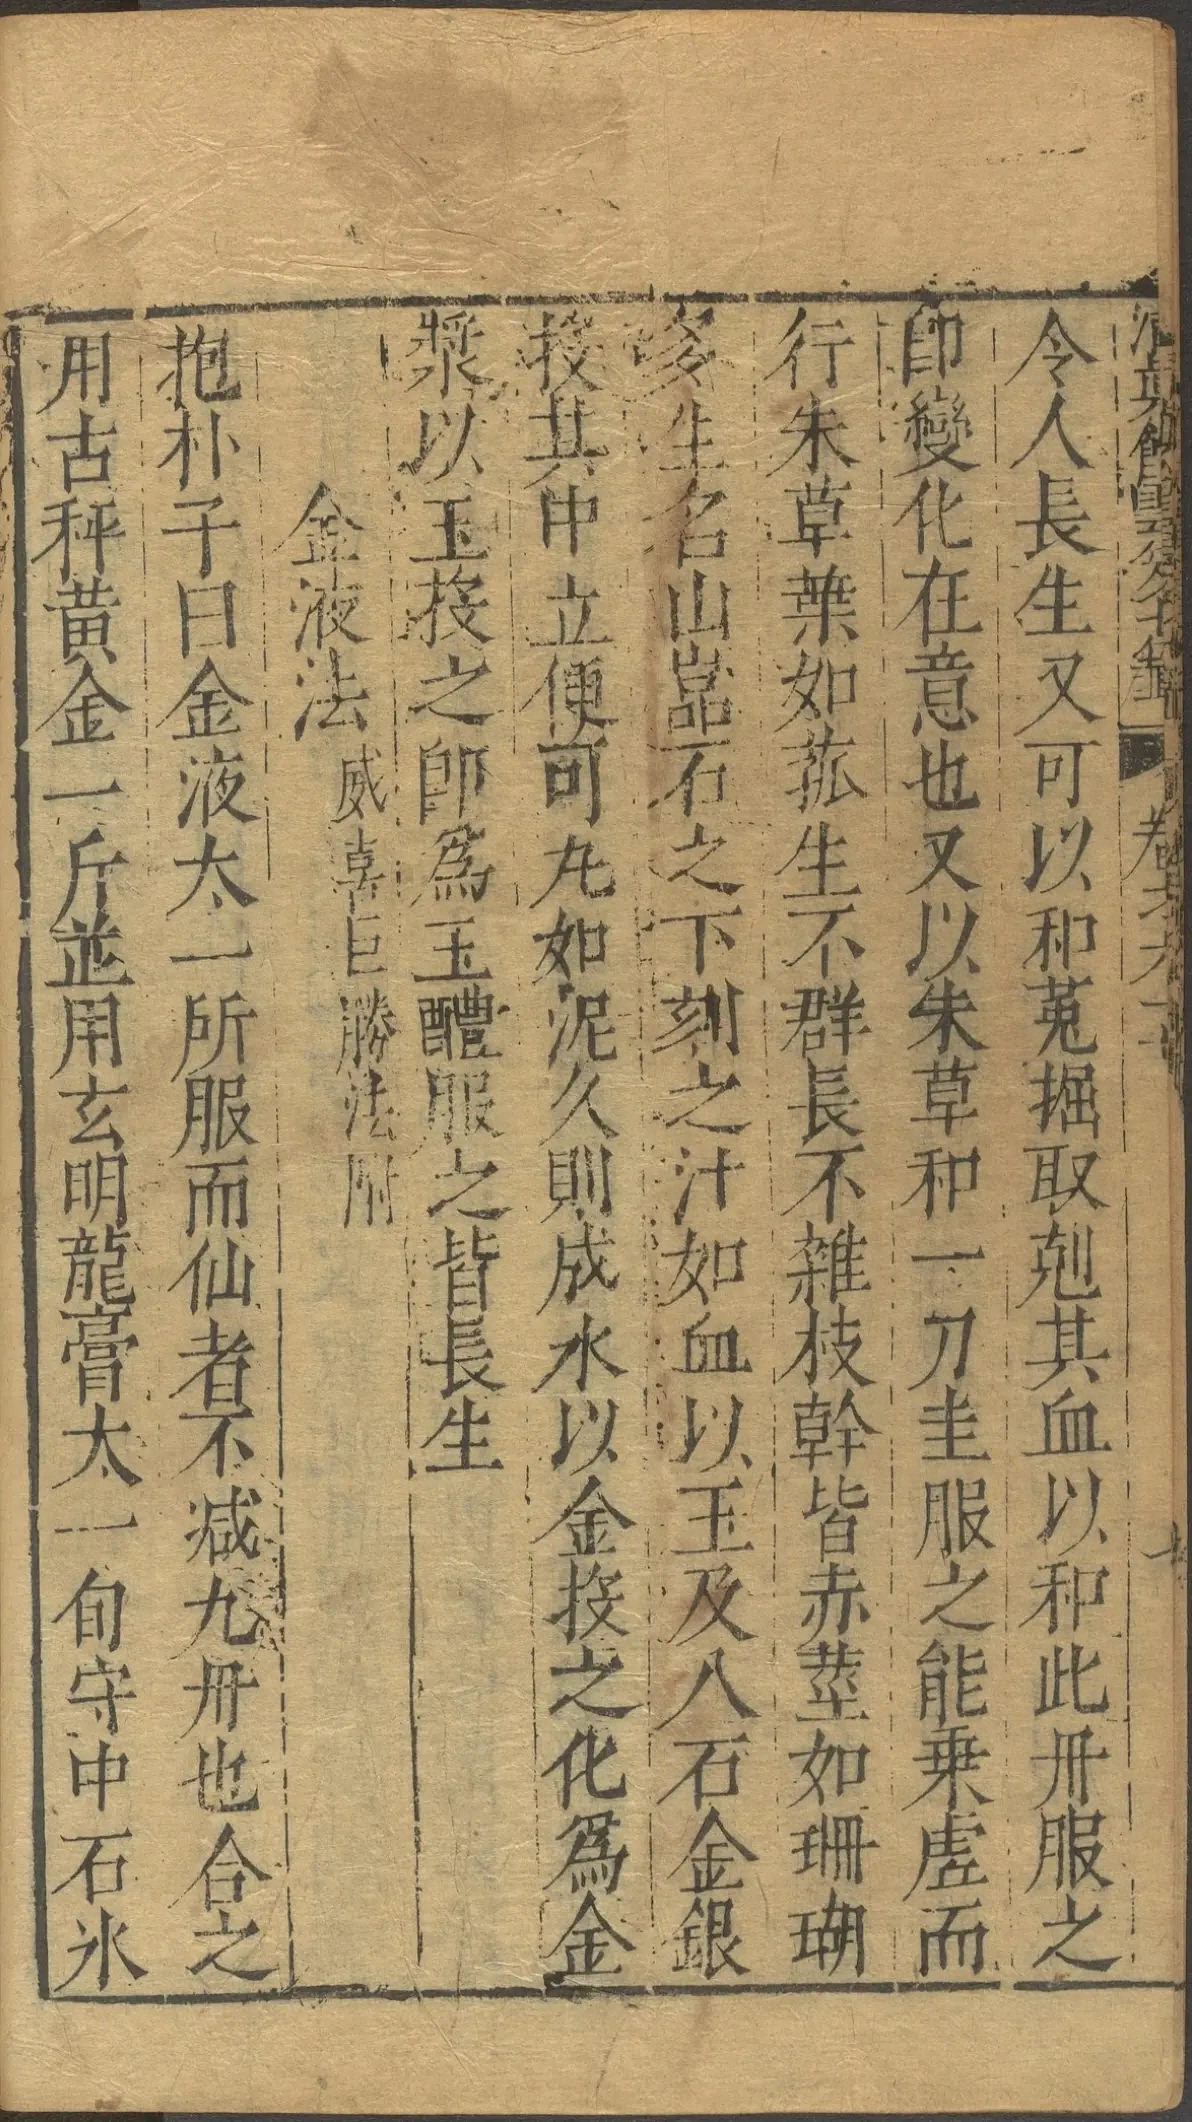 令人長生又可以和菟掘取剋其血以和此丹服之
卽變化在意也又以朱草和一刀圭服之能乗虛而
行朱草葉如菰生不群長不雜枝幹皆赤莖如珊瑚
多生名山嵓石之下刻之汁如血以玉及八石金銀
投其中立便可丸如泥久則成水以金投之化爲金
漿以玉投之卽爲玉醴服之皆長生
金液法 威喜巨勝法附
抱朴子曰金液太一所服而仙者不減九丹也合之
用古秤黃金一斤並用玄明龍膏太一旬守中石氷